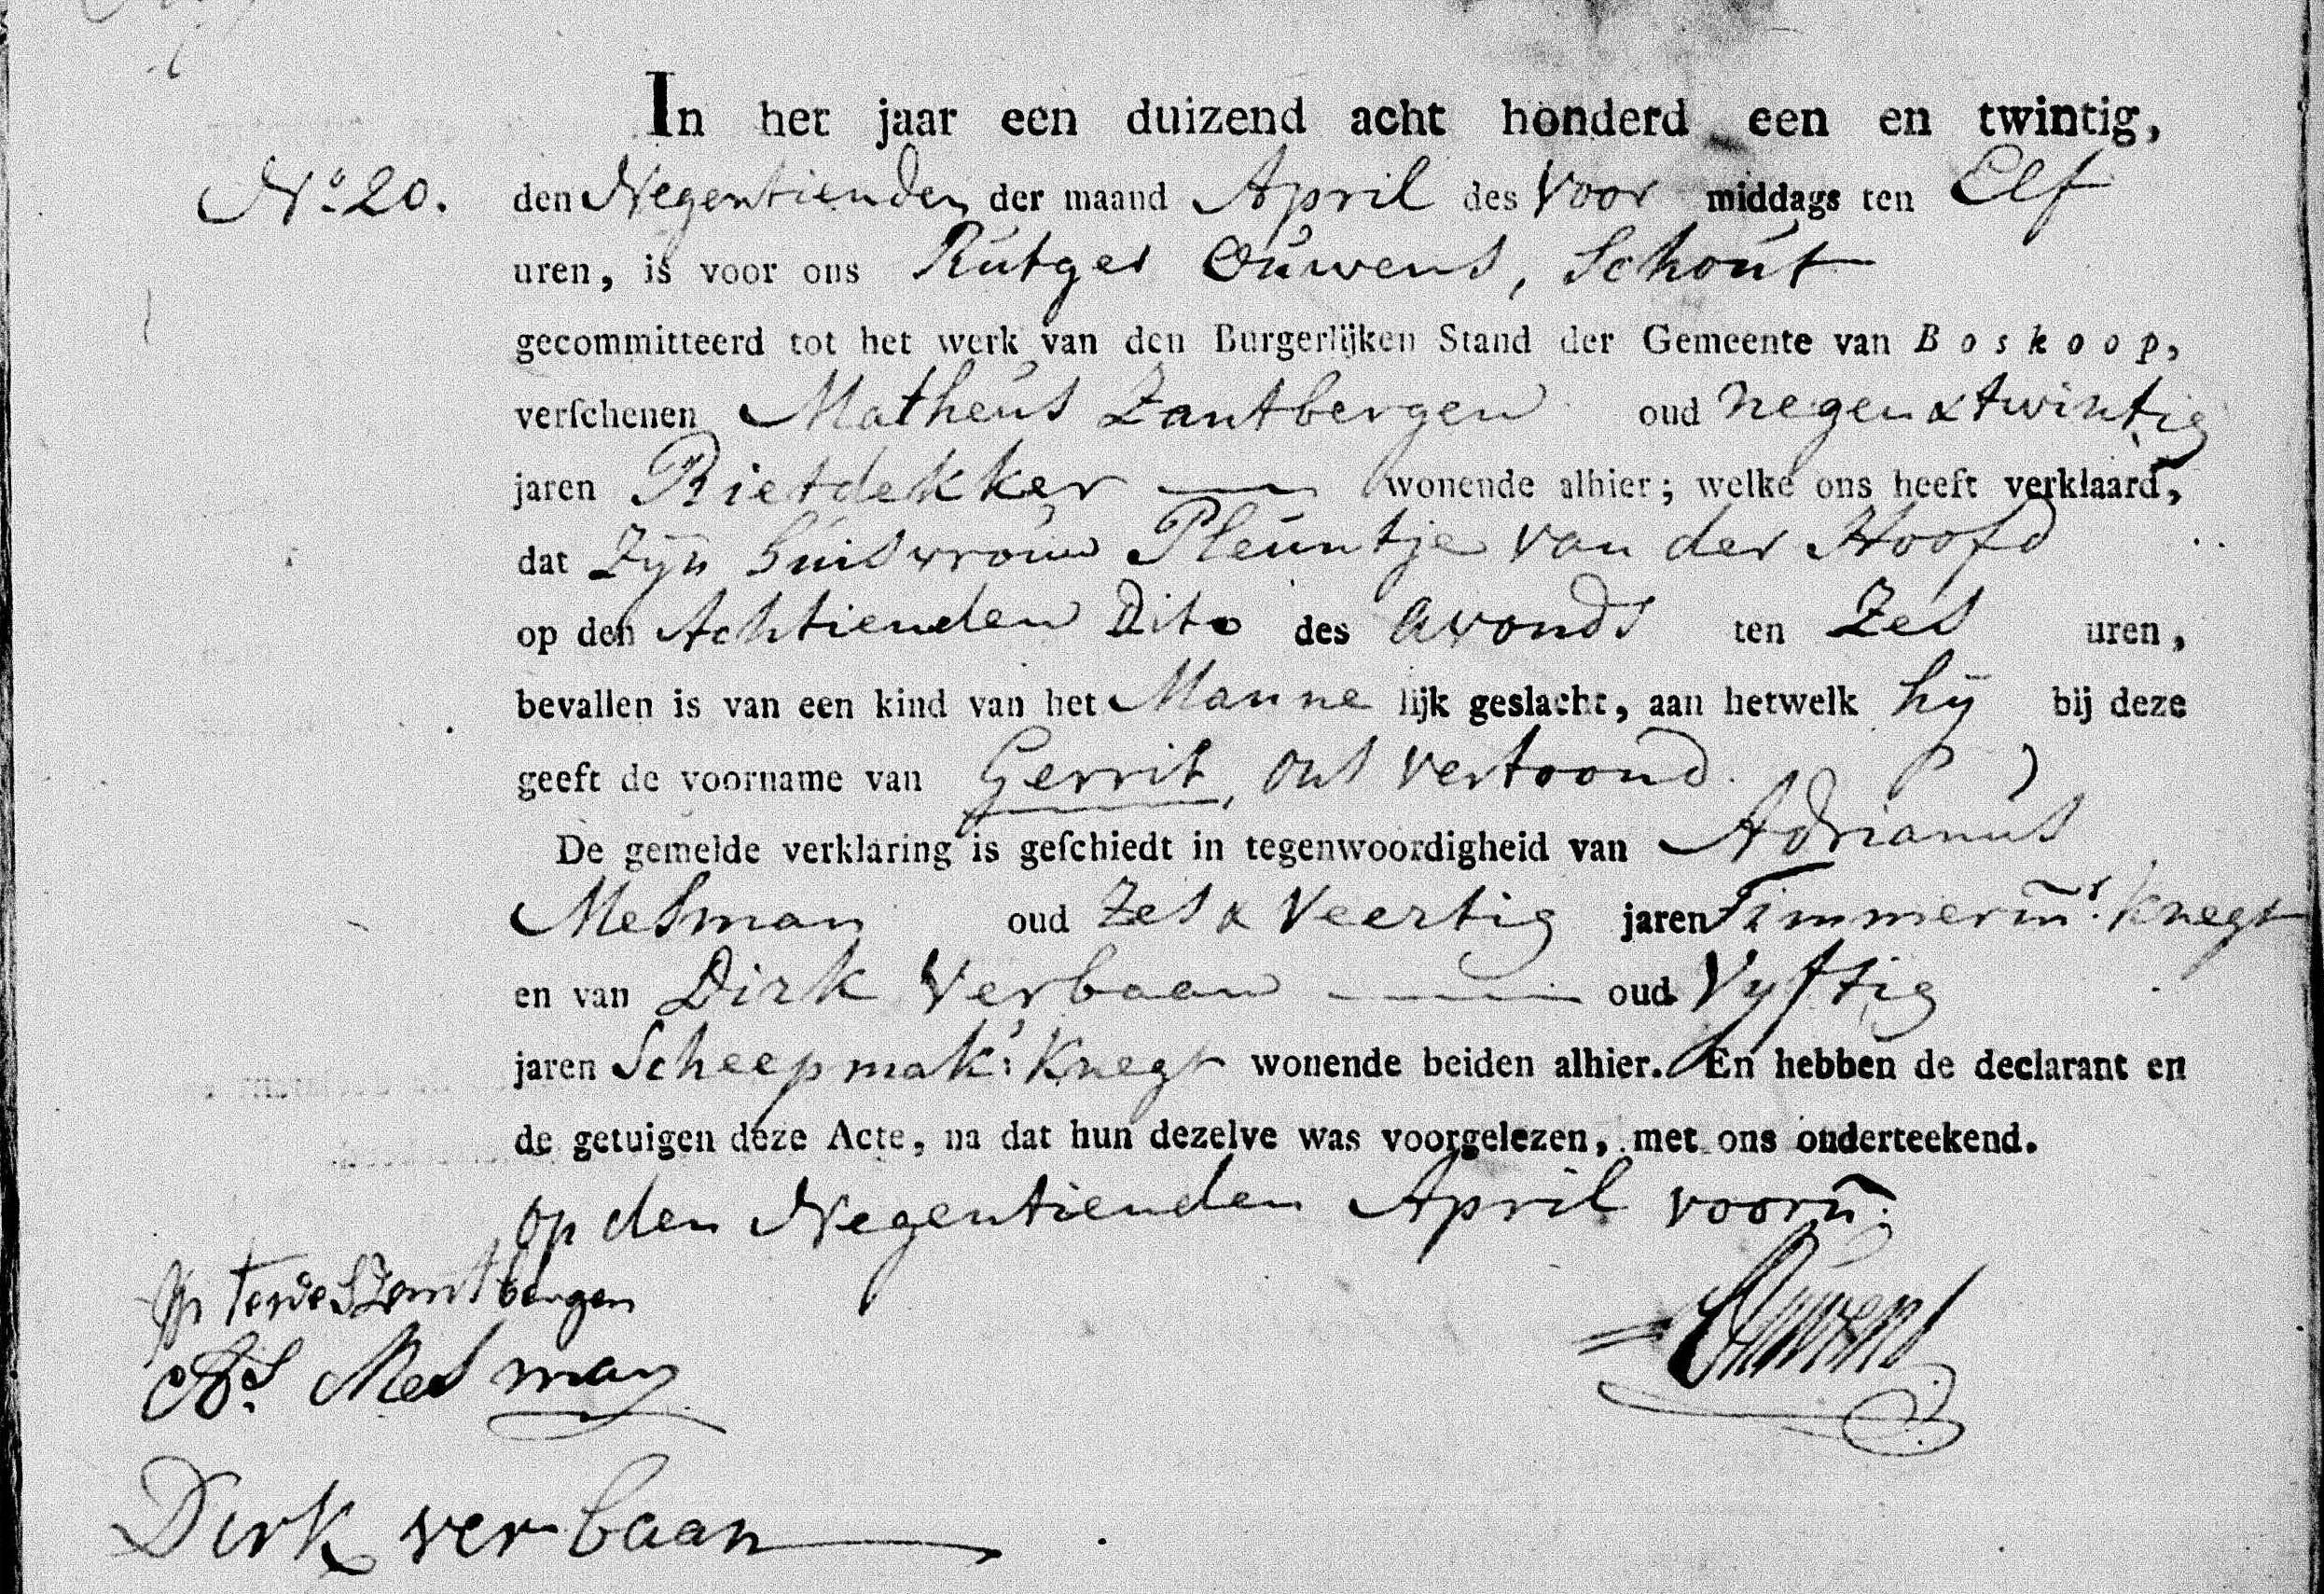 In het jaar een duizend acht honderd een en twintig,
N.o 20. den Negentienden der maand April des Voor middags ten Elf
uren, is voor ons Rutger Ouwens, Schout
gecommitteerd tot het werk van den Burgerlijken Stand der Gemeente van Boskoop,
verschenen Matheus Zantbergen oud negen & twintig
jaren Rietdekker — wonende alhier; welke ons heeft verklaard,
dat Zyn huisvrouw Pleuntje van der Hoofd
op den Achtienden Dito des avonds ten Zes uren,
bevallen is van een kind van het Manne lijk geslacht, aan hetwelk hy bij deze
geeft de voorname van Gerrit, ons vertoond.
De gemelde verklaring is geschiedt in tegenwoordigheid van Adrianus
Mesman oud Zes & Veertig jaren Timmerm.s knegt
en van Dirk Verbaan — oud Vyftig
jaren Scheepmak: Knegt wonende beiden alhier. En hebben de declarant en
de getuigen deze Acte, na dat hun dezelve was voorgelezen, met ons onderteekend.
op den Negentienden April voorn.
Zantbergen
Ouwens
A.s Mesman
Dirk verbaan